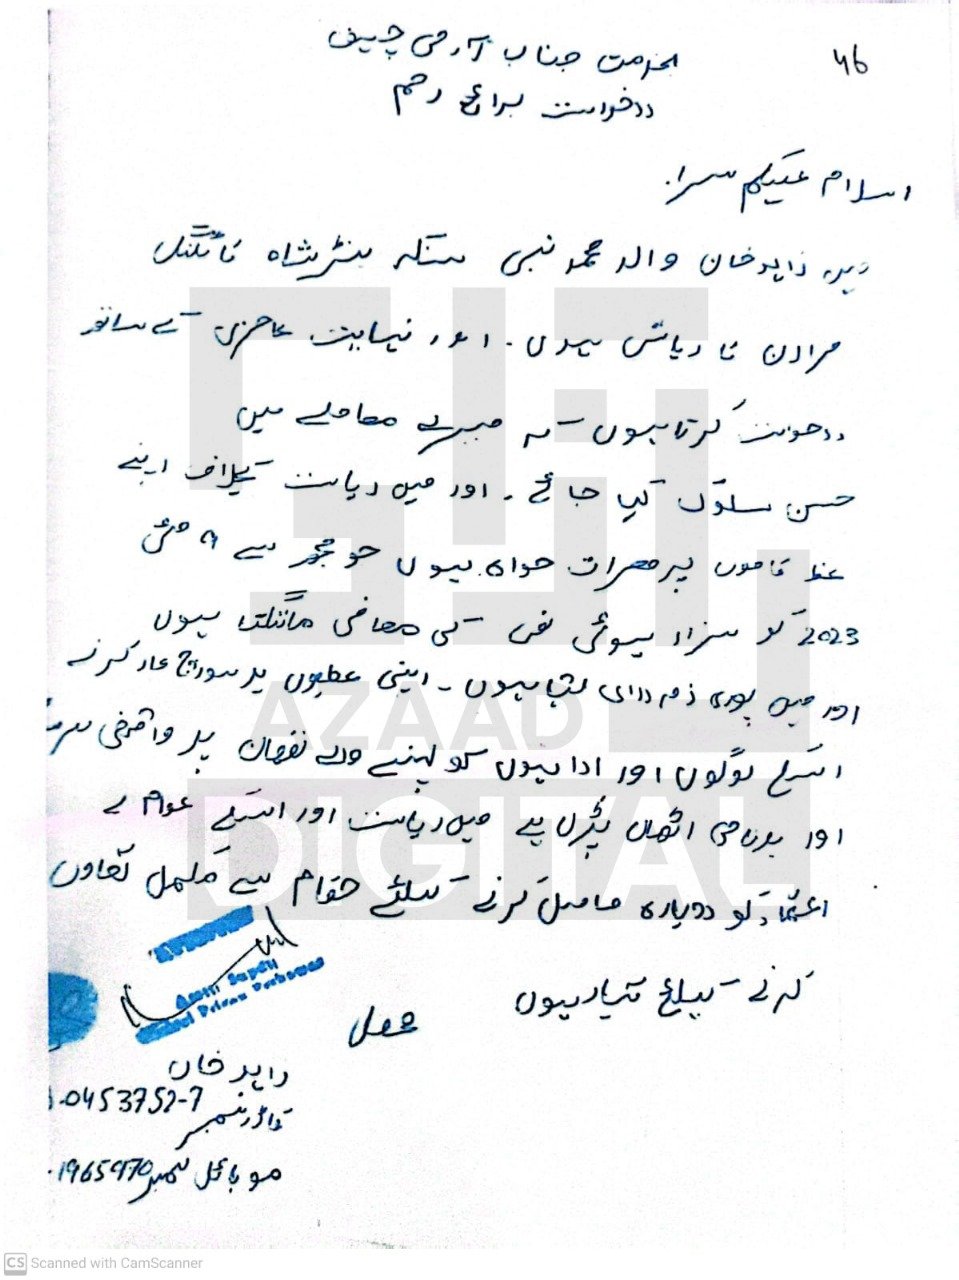 46
بخدمت جناب آرمی چیف
درخواست برائے رحم
اسلام علیکم سر!
میں زاہد خان والد محمد نبی سکنہ
مردان کا رہائشی ہوں۔ اور نہایت عاجزی کے ساتھ
درخواست کرتا ہوں کہ میرے معاملے میں
حسن سلوک کیا جائے۔ اور میں ریاست کیخلاف اپنے
غلط کاموں پر معذرت خواہ ہوں جو مجھ سے ۹ مئی
2023 کو سرزد ہوئی تھی کی معافی مانگتا ہوں
اور میں پوری ذمہ داری لیتا ہوں۔ اپنی غلطیوں پر
اسکے لوگوں اور اداروں کو پہنچنے والے نقصان پر واقعی
اور بدنامی اٹھانی پڑی ہے میں ریاست اور اسکے عوام کے
اعتماد کو دوبارہ حاصل کرنے کیلئے حکام سے مکمل تعاون
کرنے کیلئے تیار ہوں
زاہد خان
0453752-7
کارڈ نمبر
موبائل نمبر 1965970
AZAAD
DIGITAL
CS Scanned with CamScanner